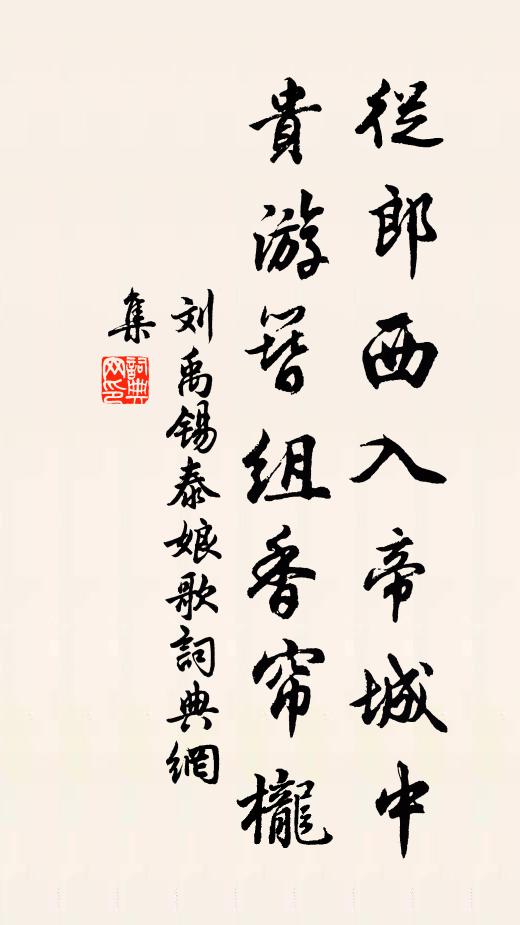 從郎西入帝城中
貴游簪組香帘櫳
刘禹锡泰娘歌詞典網
集
詞典
网印